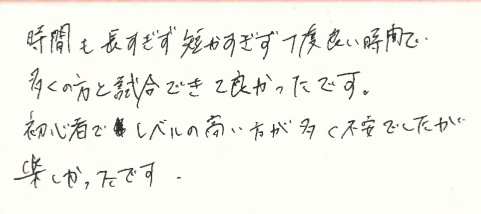 時間も長すぎず短かすぎず丁度良い時間で
多くの方と試合できて良かったです。
初心者でレベルの高い方が多く不安でしたが
楽しかったです.